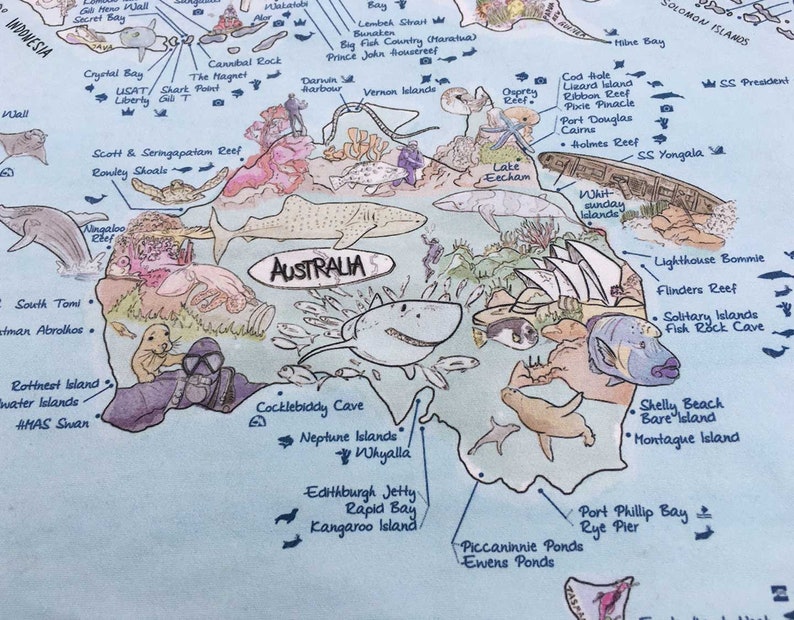 INDONESIA
Gili Meno Wall
Secret Bay
JAVA
Sangalaki
Wakatobi
Alor
Bay
Lembek Strait
Bunaken
Big Fish Country (Maratua)
Prince John Housereef
SOLOMON ISLANDS
Milne Bay
Crystal Bay
USAT
Liberty
Shark Point
Gili T
The Magnet
Cannibal Rock
Darwin
Harbour
Vernon Islands
Osprey
Reef
Cod Hole
Lizard Island
Ribbon Reef
Pixie Pinacle
Port Douglas
Cairns
Holmes Reef
SS President
Wall
Scott & Seringapatam Reef
Rowley Shoals
Lake
Eecham
SS Yongala
Whit-
sunday
Islands
Ningaloo
Reef
AUSTRALIA
Lighthouse Bommie
Flinders Reef
Solitary Islands
Fish Rock Cave
South Tomi
Abrolhos
Rottnest Island
water Islands
HMAS Swan
Cocklebiddy Cave
Neptune Islands
Whyalla
Shelly Beach
Bare Island
Montague Island
Edithburgh Jetty
Rapid Bay
Kangaroo Island
Port Phillip Bay
Rye Pier
Piccaninnie Ponds
Ewens Ponds